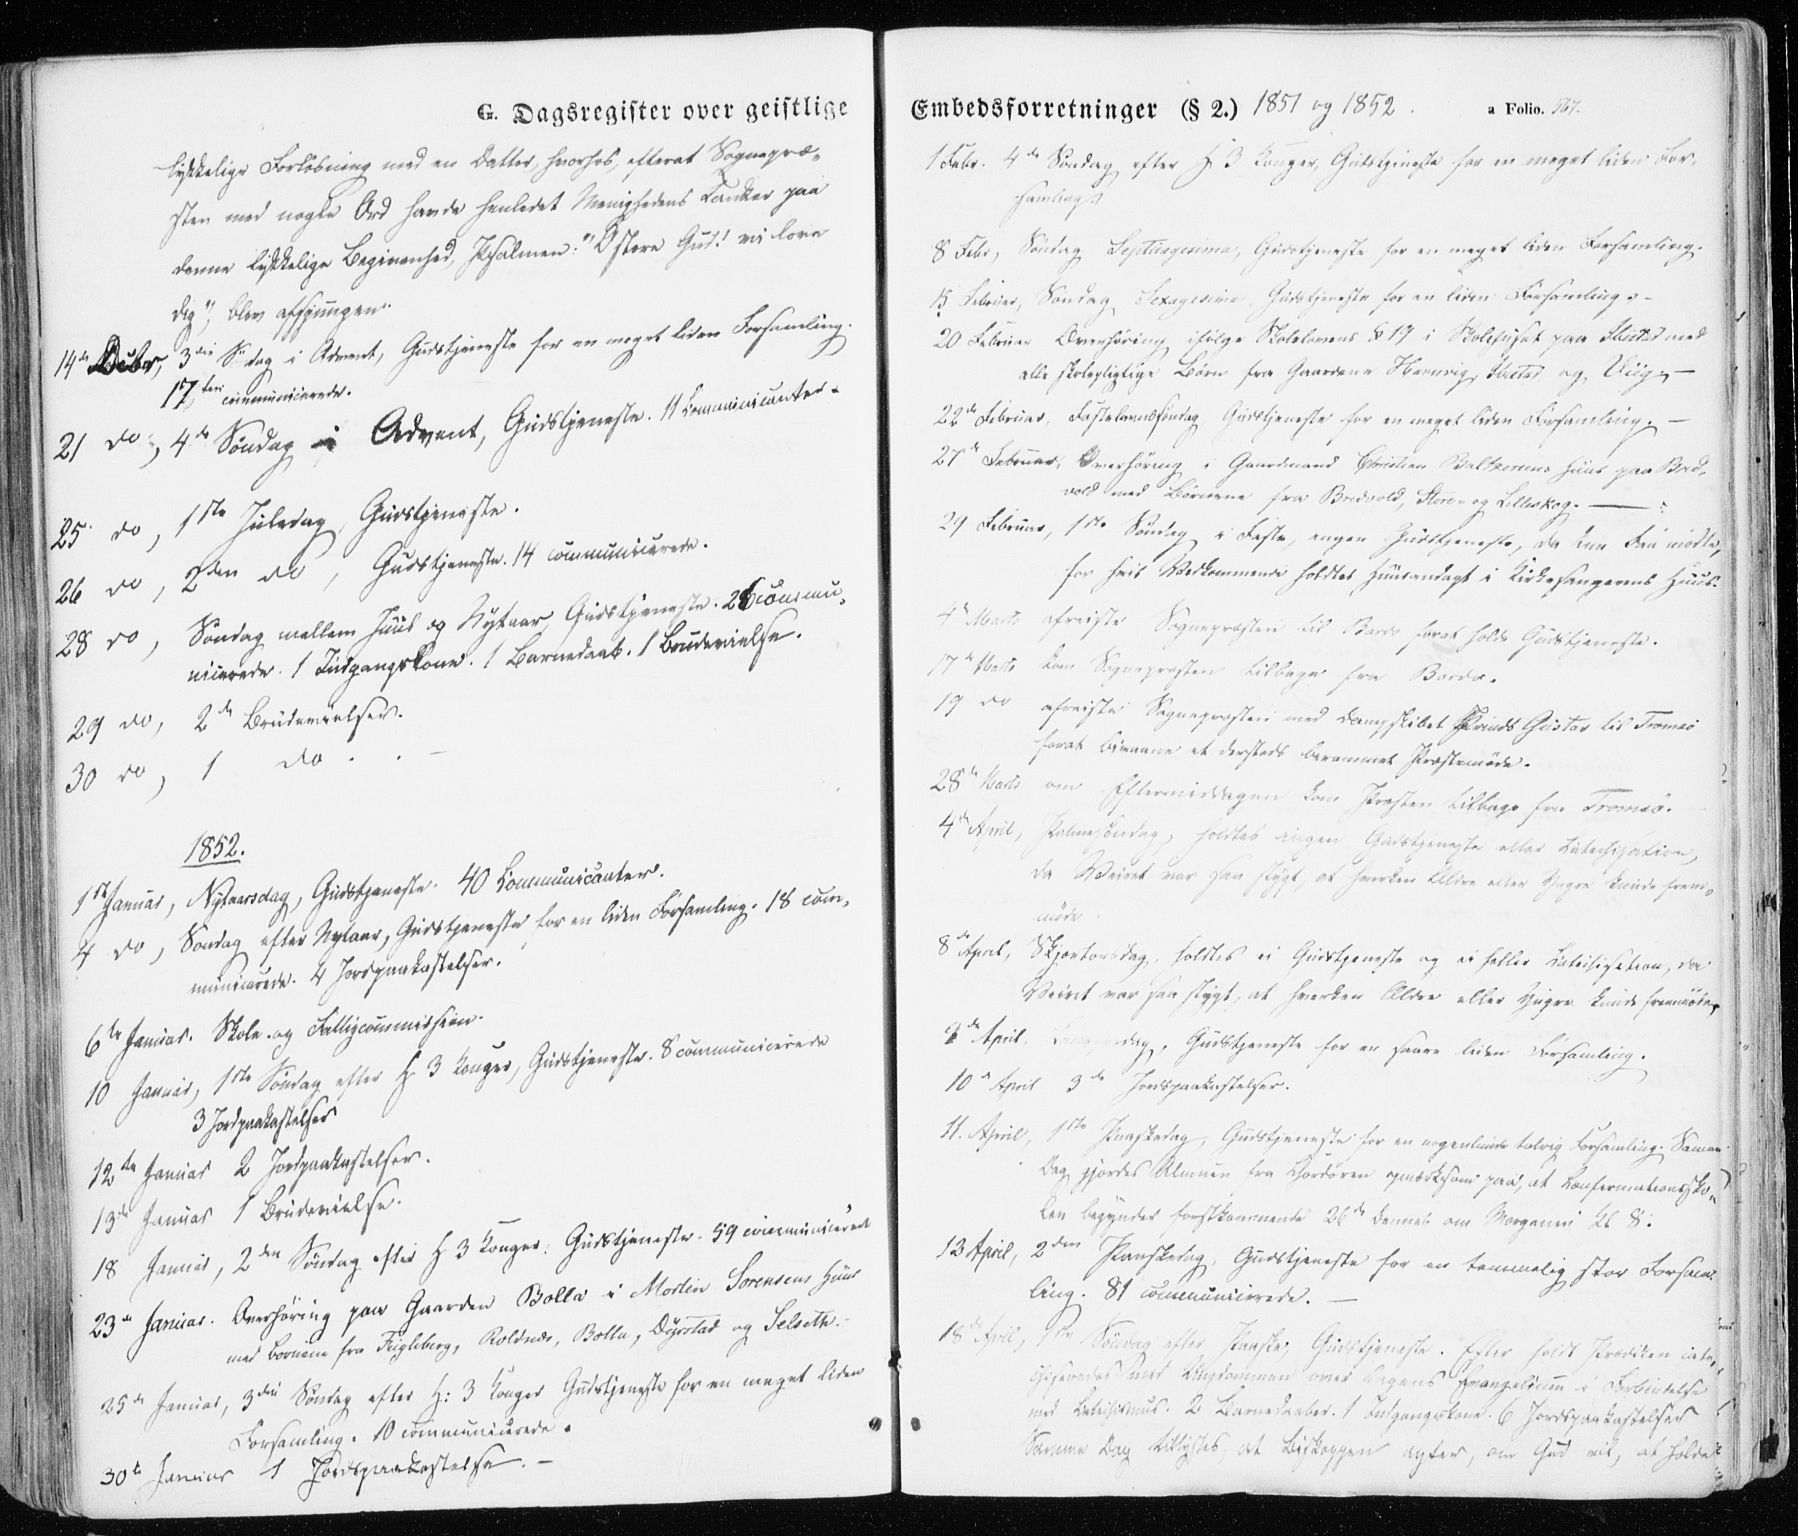 G. Dagsregister over geistlige
lykkelige Forløsning med en Datter, hvorhos, efterat Sognepræ-
sten med nogle Ord havde henledet Menighedens Tanker paa
denne lykkelige Begivenhed, Psalmen: "O store Gud! vi love
dig", blev afsjungen.
14de Decbr, 3die Søndag i Advent, Gudstjeneste for en meget liden Forsamling.
17 communicerede.
21 do, 4de Søndag i Advent, Gudstjeneste. 11 Communicanter.
25 do, 1ste Juledag, Gudstjeneste.
26 do, 2den do, Gudstjeneste. 14 communicerede.
28 do, Søndag mellem Juul og Nytaar, Gudstjeneste. 28 commu-
nicerede. 1 Indgangskone. 1 Barnedaab. 1 Brudevielse.
29 do, 2de Brudevielser.
30 do, 1 do . . —
1852.
1ste Januar, Nytaarsdag, Gudstjeneste. 40 Communicanter.
4 do, Søndag efter Nytaar, Gudstjeneste for en liden Forsamling. 18 com-
municerede. 4 Jordspaakastelser.
6te Januar. Skole- og Fattigcommission.
10 Januar, 1ste Søndag efter H 3 Konger, Gudstjeneste. 8 communicerede
3 Jordpaakastelser
12te Januar 2 Jordpaakastelser.
13de Januar 1 Brudevielse.
18 Januar, 2den Søndag efter H 3 Konger. Gudstjeneste. 59 communicerede
23de Januar. Overhøring paa Gaarden Bolla i Morten Sørensens Huus
med Børnene fra Fugleberg, Roldnæs, Bolla, Dyrstad og Selseth.
25de Januar, 3die Søndag efter H: 3 Konger Gudstjeneste for en meget liden
Forsamling. 10 communicerede.
30te Januar 1 Jordspaakastelse. —
Embedsforretninger (§ 2.) 1851 og 1852. a Folio. 567.
1 Febr. 4de Søndag efter H 3 Konger, Gudstjeneste for en meget liden For-
samling
8 Febr, Søndag Septuagesima, Gudstjeneste for en meget liden Forsamling.
15 Februar, Søndag Sexagesima, Gudstjeneste for en liden Forsamling. -
20 Februar Overhøring ifølge Skolelovens § 19 i Skolehuset paa Ibestad med
alle skolepligtige Børn fra Gaardene Hamnvig, Ibestad og Viig. —
22de Februar, Fastelavnssøndag Gudstjeneste for en meget liden Forsamling. —
27de Februar, Overhøring i Gaardmand Christen Baltzersens Huus paa Bred-
vold med Børnene fra Bredvold, Store- og Lilleskog. —
29 Februar, 1ste Søndag i Faste, ingen Gudstjeneste, da kun Faa mødte,
for hvis Vedkommende holdtes Huusandagt i Kirkesangerens Huus.
4de Marts afreiste Sognepræsten til Bardo forat holde Gudstjeneste.
17de Marts kom Sognepræsten tilbage fra Bardo.
19 do afreiste Sognepræsten med Dampskibet Prinds Gustav til Tromsø
forat bivaane et dersteds berammet Præstemøde.
28de Marts om Eftermiddagen kom Præsten tilbage fra Tromsø. —
4de April, Palmesøndag, holdtes ingen Gudstjeneste eller Catechisation,
da Veiret var saa stygt, at hverken Ældre eller Yngre kunde frem-
møde.
8de April, Skjærtorsdag, holdtes ei Gudstjeneste og ei heller Catechisation, da
Veiret var saa stygt, at hverken Ældre eller Yngre kunde fremmøde.
9de April, Langfredag, Gudstjeneste for en saare liden Forsamling.
10de April 3de Jordspaakastelser.
11. April, 1ste Paaskedag, Gudstjeneste for en nogenlunde talrig Forsamling. Samme
Dag gjordes Almuen fra opmærksom paa, at Confirmationssko-
len begynder førstkommende 26de dennes om Morgenen Kl 8.
12 April, 2den Paaskedag, Gudstjeneste for en temmelig stor Forsam-
ling. 81 communicerede. —
18de April, 1ste Søndag efter Paaske, Gudstjeneste. Efter holdt Prædiken cate-
chiseredes med Ungdommen over Dagens Evangelium i Forbindelse
med Catechismus. 2 Barnedaaber. 1 Indgangskone. 6 Jordspaakastelser
Samme Dag tillystes, at Biskoppen agter, om Gud vil, at holde